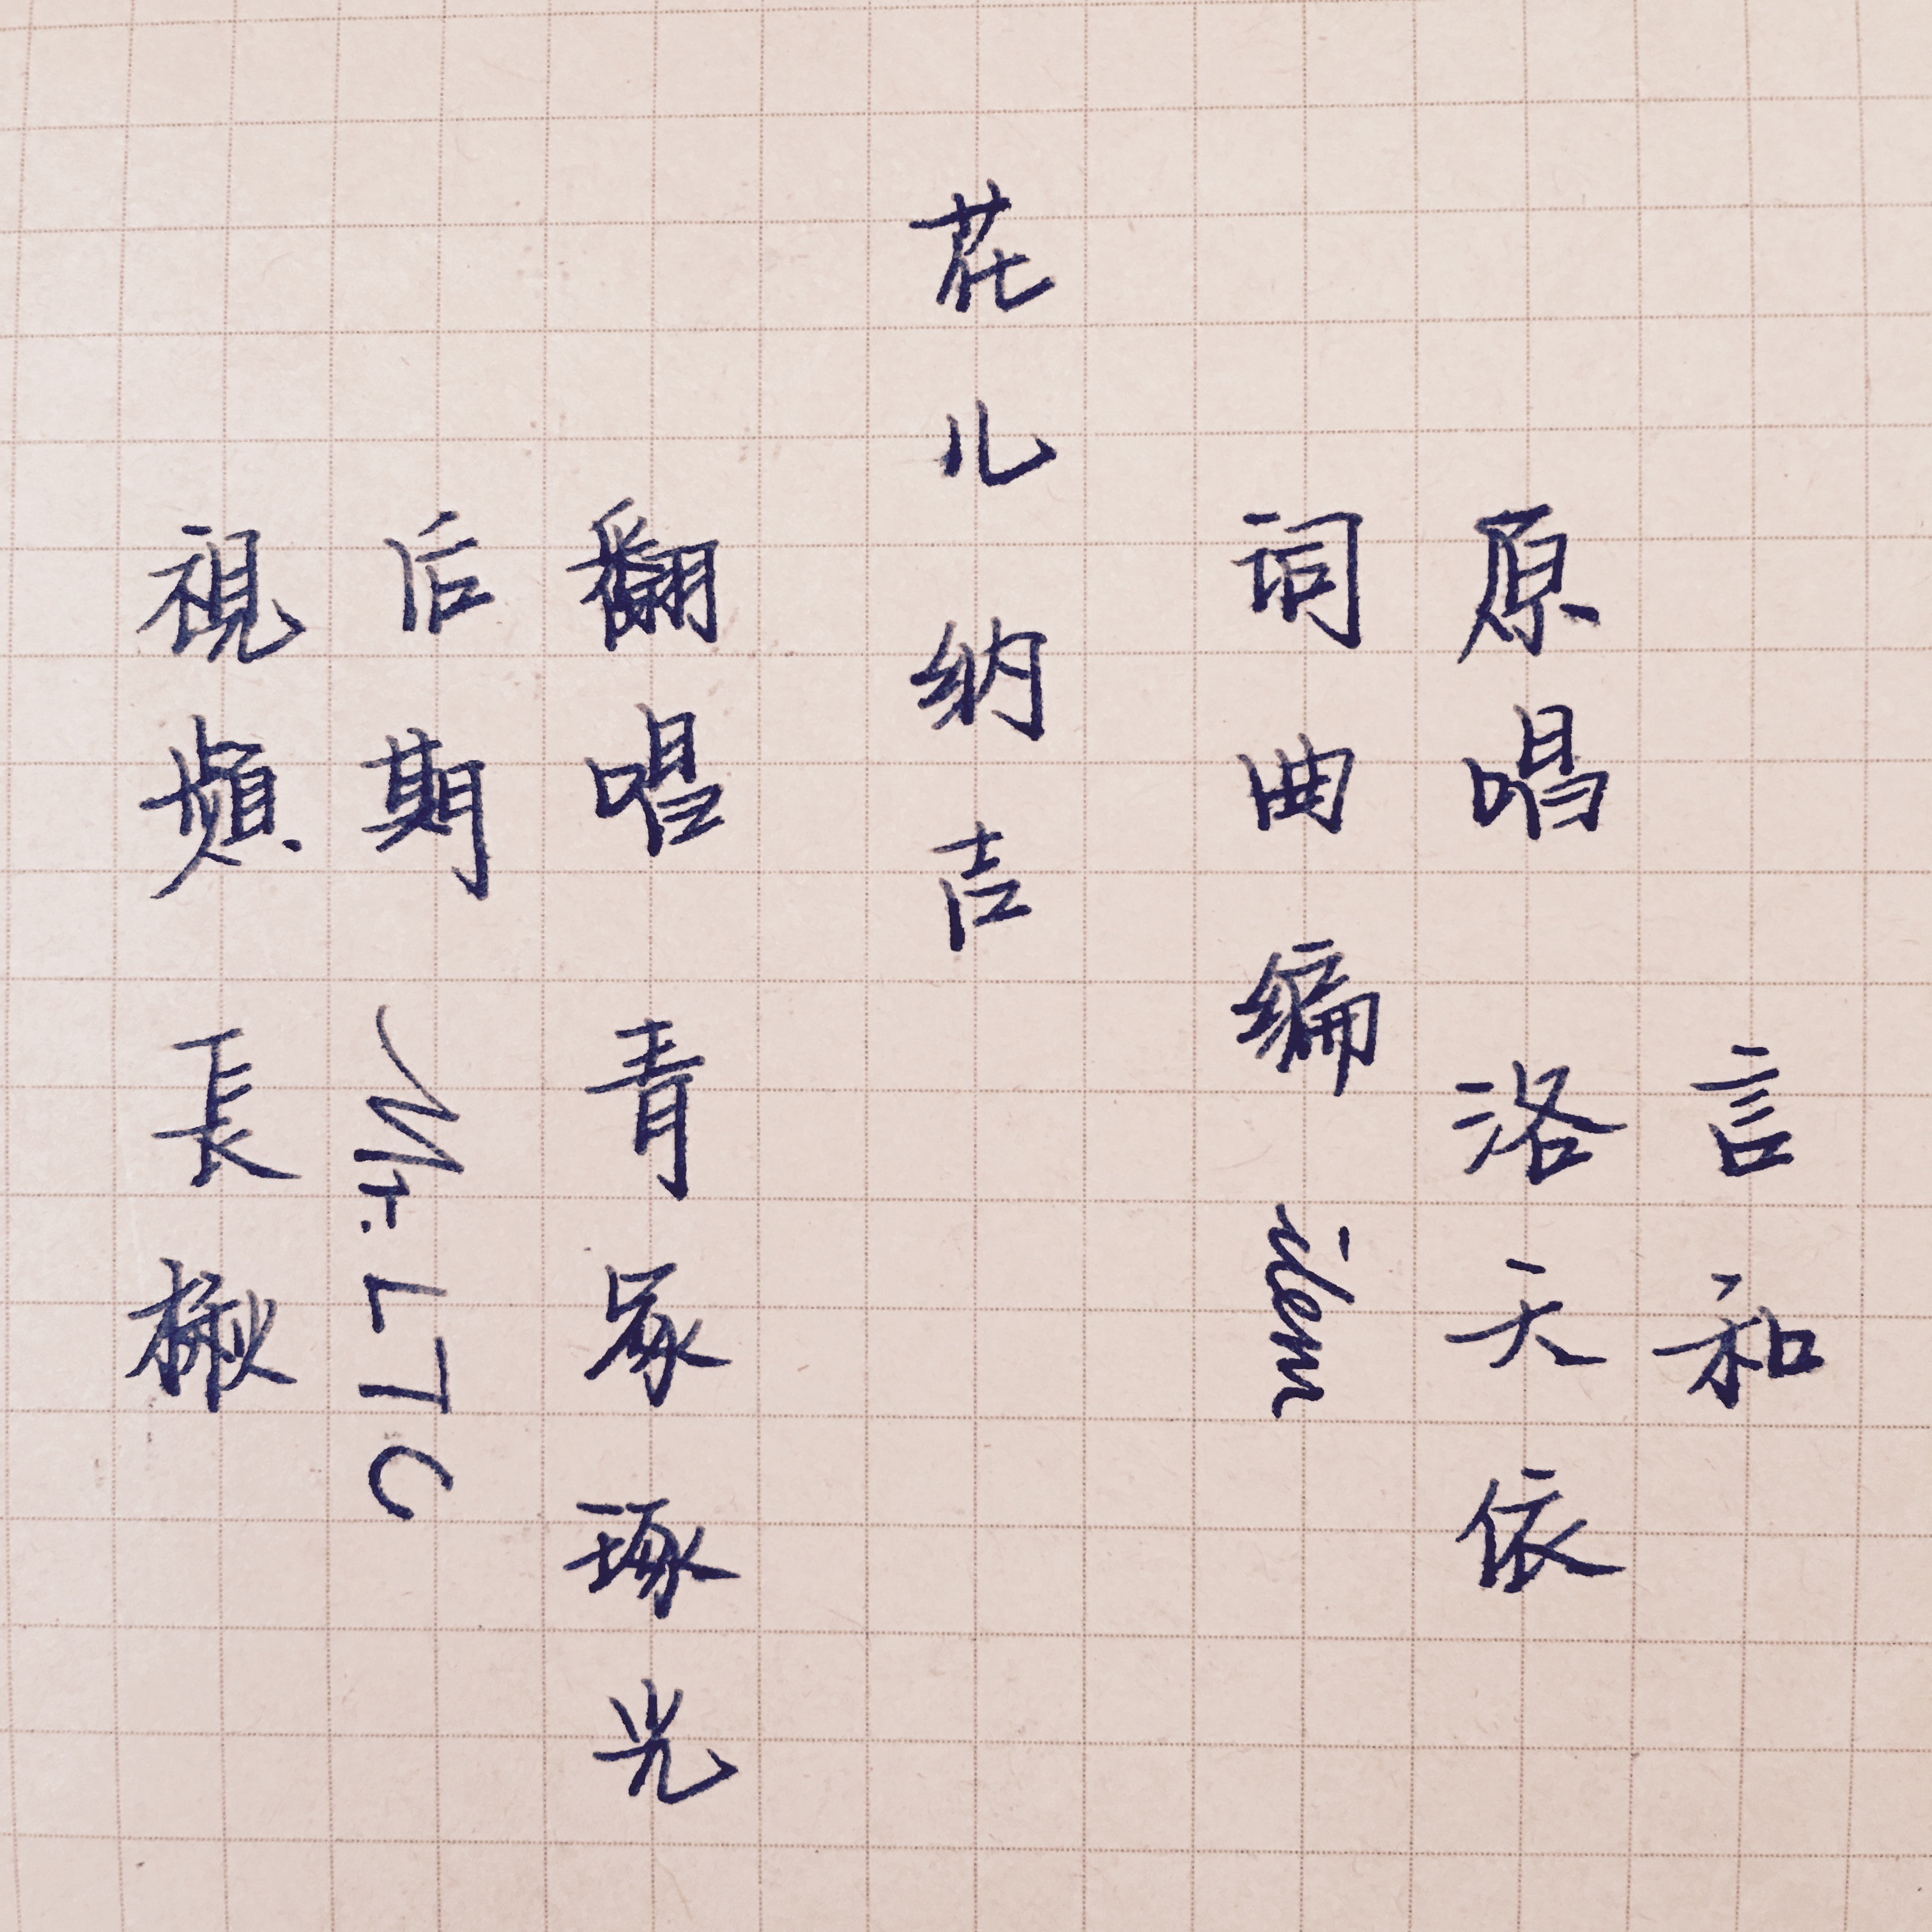 言和
原唱 洛天依
词曲编 ilem
花儿纳吉
翻唱 青冢琢光
后期 Mr.LTC
視頻 長楸